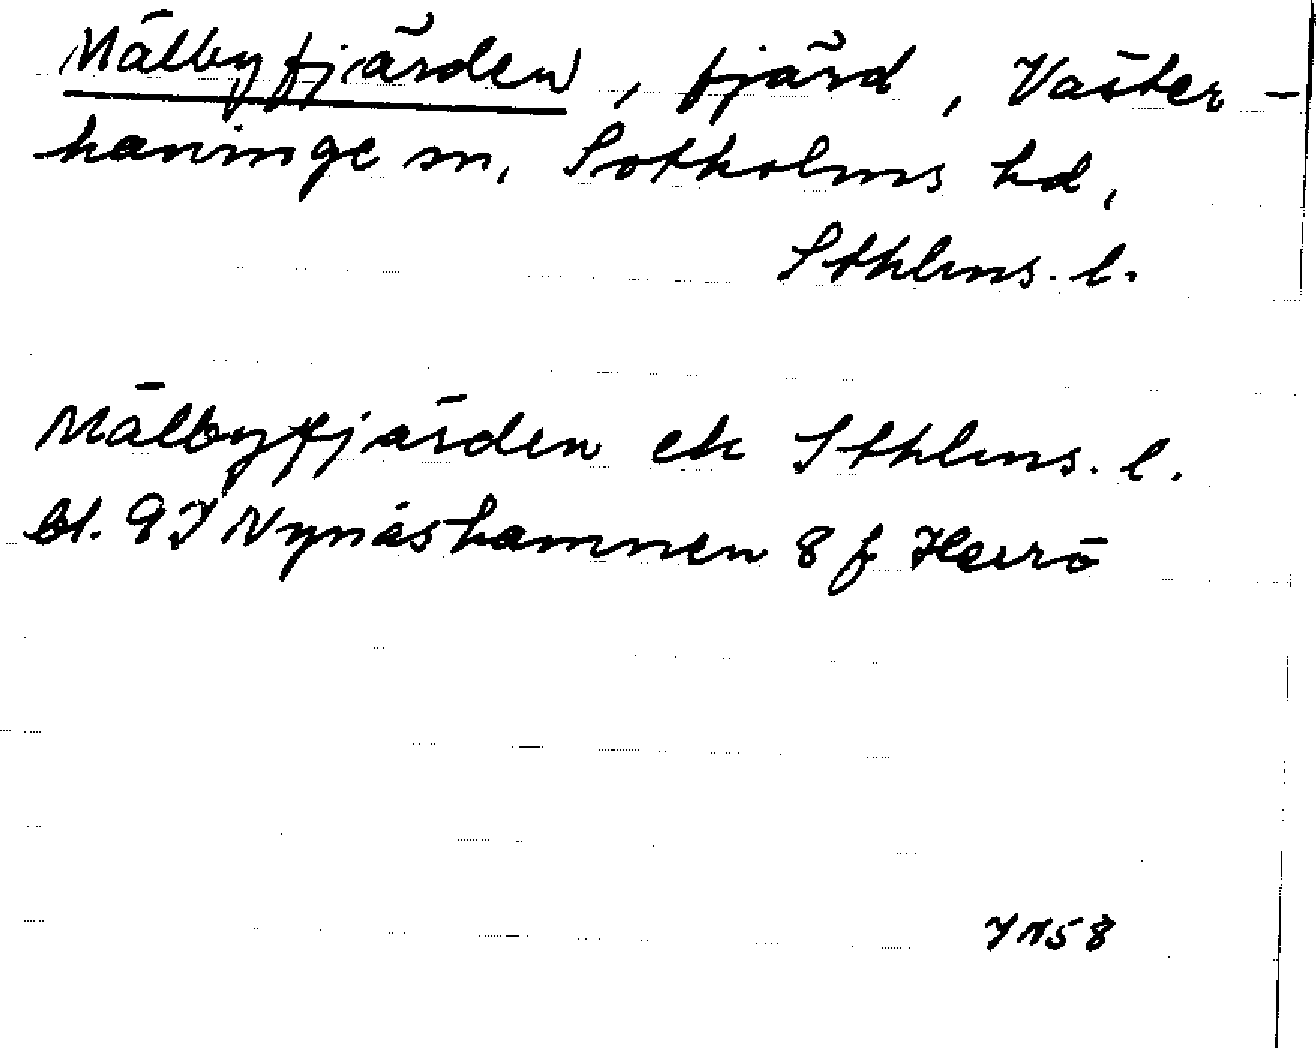 Mälbyfjärden, fjärd, Väster-
haninge sn, Sotholms hd,
Sthlms. l.
Mälbyfjärden ek Sthlms. l.
bl. 9I Nynäshamnen 8 f Herrö